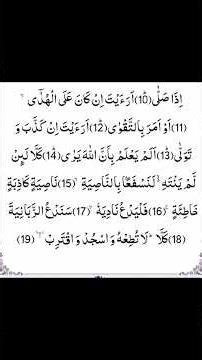 اِذَا صَلّٰى(10) اَرَءَيْتَ اِنْ كَانَ عَلَى الْهُدٰٓى ۙ
(11) اَوْ اَمَرَ بِالتَّقْوٰى(12) اَرَءَيْتَ اِنْ كَذَّبَ وَ
تَوَلّٰى(13) اَلَمْ يَعْلَمْ بِاَنَّ اللّٰهَ يَرٰى(14) كَلَّا لَىِٕنْ
لَّمْ يَنْتَهِ ۙ لَنَسْفَعًۢا بِالنَّاصِيَةِ ۙ(15) نَاصِيَةٍ كَاذِبَةٍ
خَاطِئَةٍ ۚ(16) فَلْيَدْعُ نَادِيَهٗ ۙ(17) سَنَدْعُ الزَّبَانِيَةَ ۙ
(18) كَلَّا ؕ لَا تُطِعْهُ وَ اسْجُدْ وَ اقْتَرِبْ
(19)